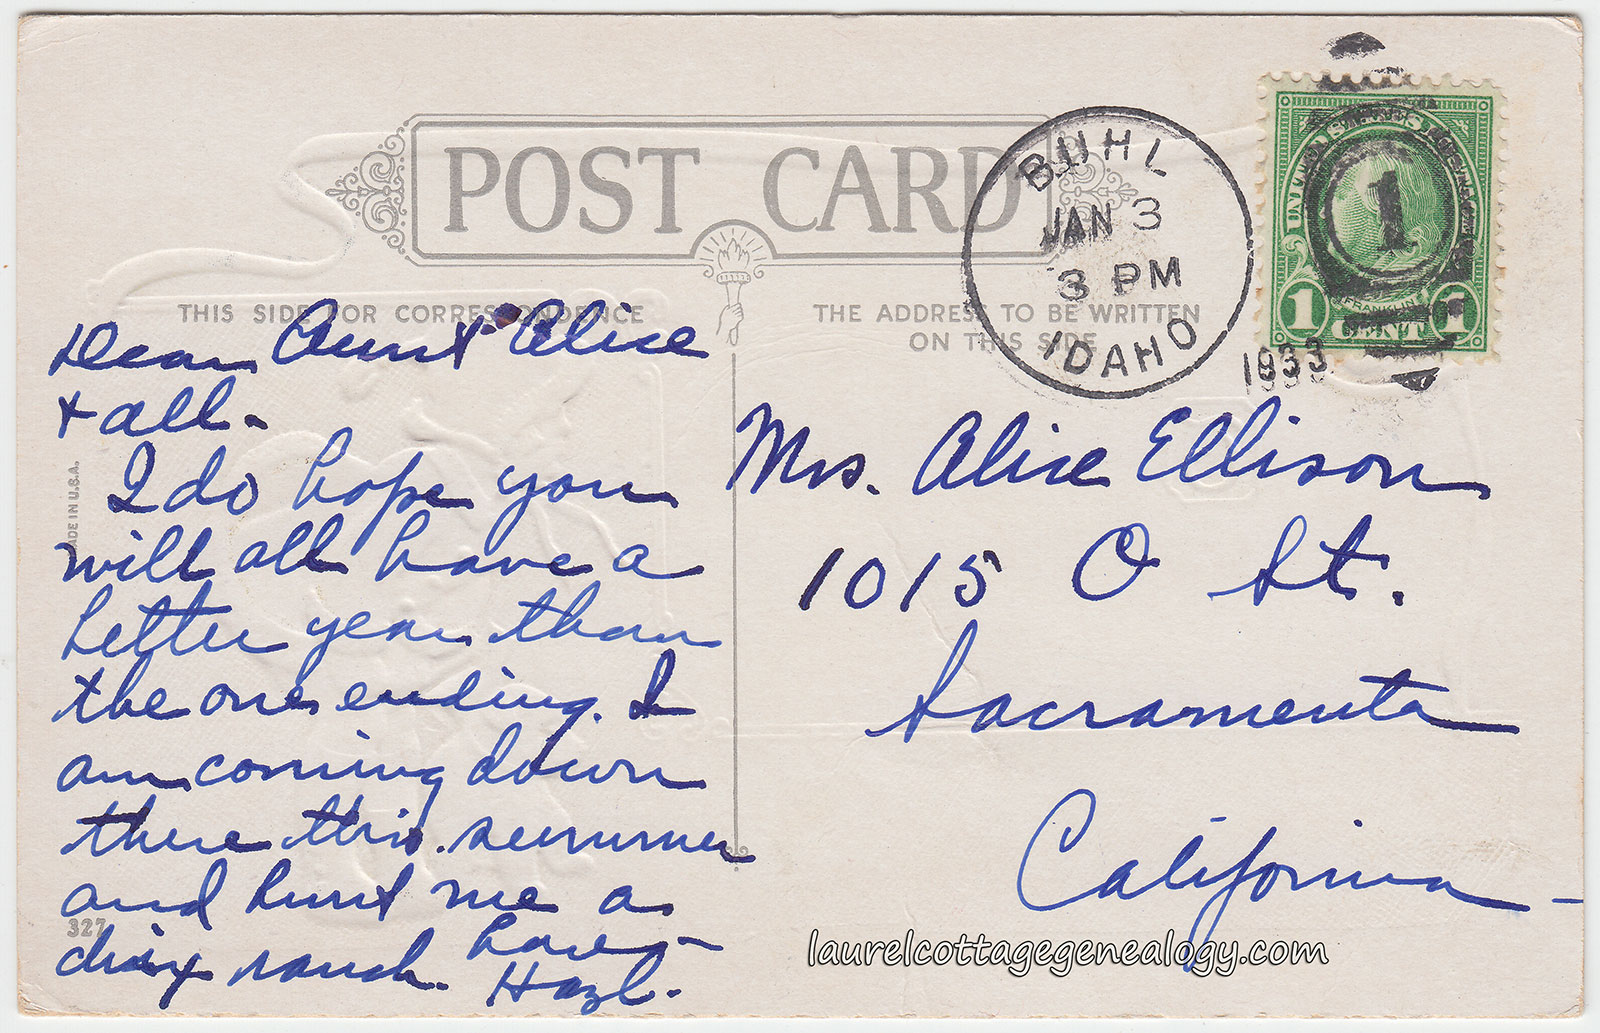 POST CARD
BUHL
JAN 3
3 PM
IDAHO
1933
1
UNITED STATES
FRANKLIN
1 CENT 1
THIS SIDE FOR CORRESPONDENCE
THE ADDRESS TO BE WRITTEN
ON THIS SIDE
Dear Aunt Alice
+ all.
I do hope you
will all have a
better year than
the one ending. I
am coming down
there this summer
and hunt me a
ranch.
Love -
Hazl.
Mrs. Alice Ellison
1015 O St.
Sacramento
California -
MADE IN U.S.A.
327
laurelcottagegenealogy.com